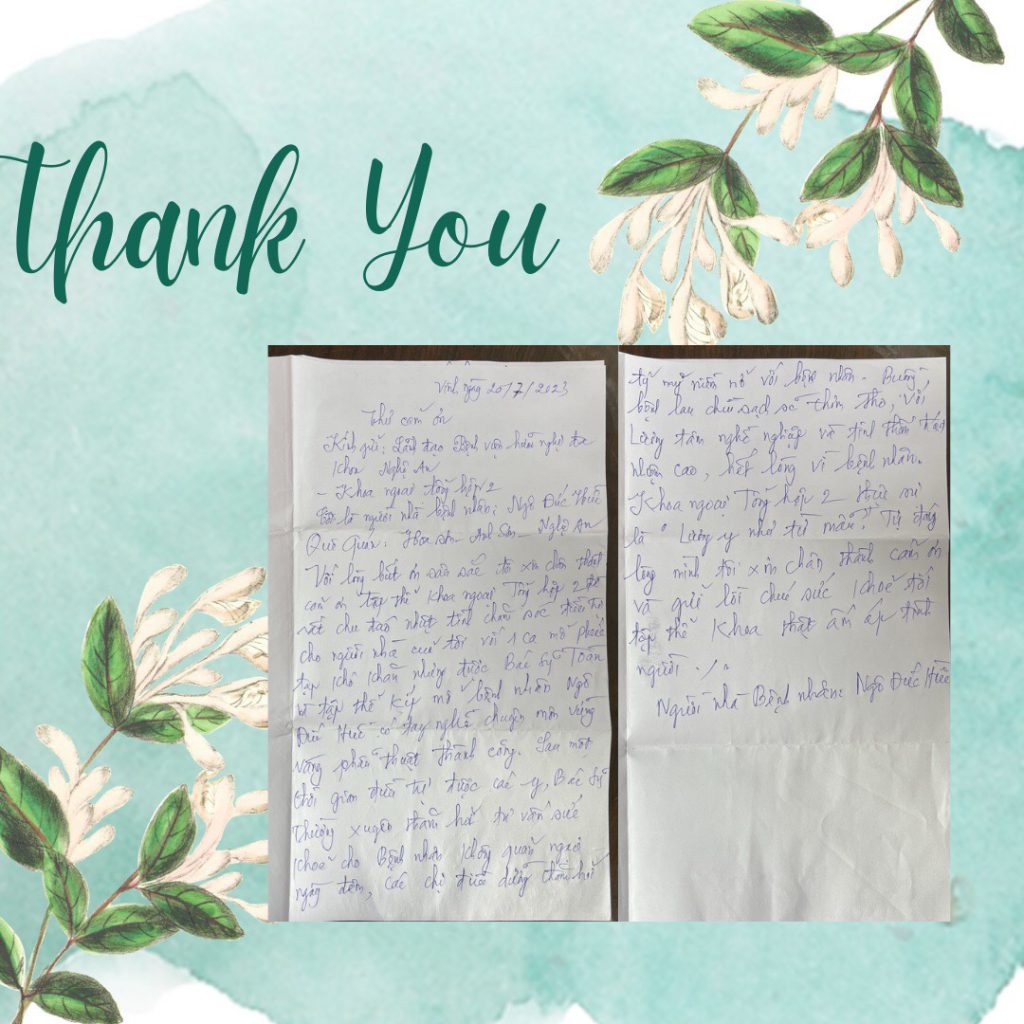 Thank You
Vinh, ngày 20/7/2023
Thư cảm ơn
Kính gửi: Lãnh đạo Bệnh viện hữu nghị đa
khoa Nghệ An
- Khoa ngoại tổng hợp 2
Tôi là người nhà bệnh nhân: Ngô Đức Huề
Quê Quán: Hoa Sơn Anh Sơn - Nghệ An
Với lòng biết ơn sâu sắc tôi xin chân thành
cảm ơn tập thể khoa ngoại Tổng hợp 2 đã
rất chu đáo nhiệt tình chăm sóc điều trị
cho người nhà của tôi với 1 ca mổ phức
tạp khó khăn nhưng được Bác Sỹ Toàn
và tập thể kíp mổ bệnh nhân Ngô
Đức Huề có tay nghề chuyên môn vững
vàng phẫu thuật thành công. Sau một
thời gian điều trị được các y, Bác Sỹ
thường xuyên thăm hỏi tư vấn sức
khoẻ cho Bệnh nhân không quản ngại
ngày đêm, các chị điều dưỡng thăm hỏi
tỷ mỷ niềm nở với bệnh nhân. Buồng
bệnh lau chùi sạch sẽ thơm tho, với
Lương tâm nghề nghiệp và tinh thần trách
nhiệm cao, hết lòng vì bệnh nhân.
Khoa ngoại Tổng hợp 2 thực sự
là "Lương y như từ mẫu". Tự đáy
lòng mình tôi xin chân thành cảm ơn
và gửi lời chúc sức khoẻ tới
tập thể Khoa thật ấm áp tình
người ./.
Người nhà Bệnh nhân: Ngô Đức Huề